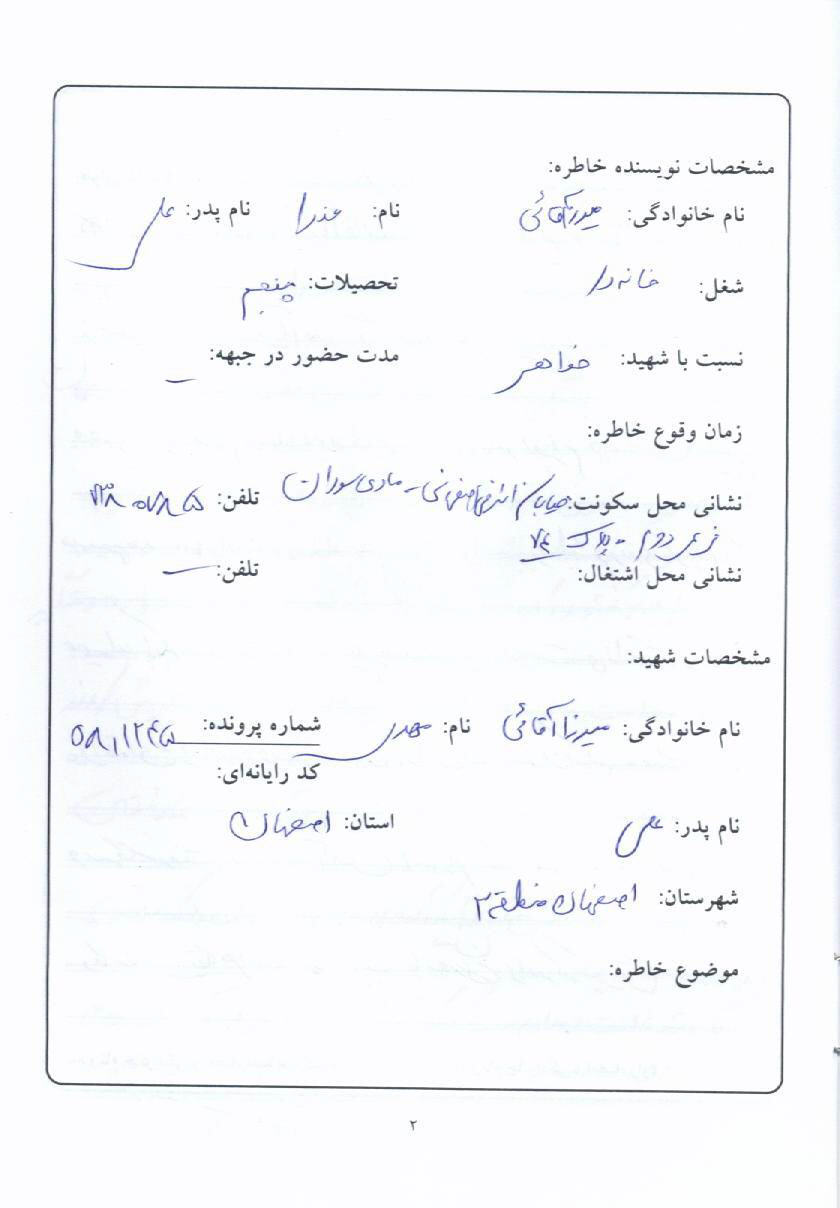 مشخصات نویسنده خاطره:
نام خانوادگی: میرزاآقائی نام: عذرا نام پدر: علی
شغل: خانه دار تحصیلات: پنجم
نسبت با شهید: خواهر مدت حضور در جبهه: ـ
زمان وقوع خاطره:
نشانی محل سکونت: خیابان اشرفی اصفهانی - مادی تلفن:
فرعی دوم - پلاک
نشانی محل اشتغال: تلفن: ـ
مشخصات شهید:
نام خانوادگی: میرزا آقائی نام: مهدی شماره پرونده: ۵۸۱۱۲۴۵
کد رایانه‌ای:
نام پدر: علی استان: اصفهان
شهرستان: اصفهان منطقه ۳
موضوع خاطره:
۲